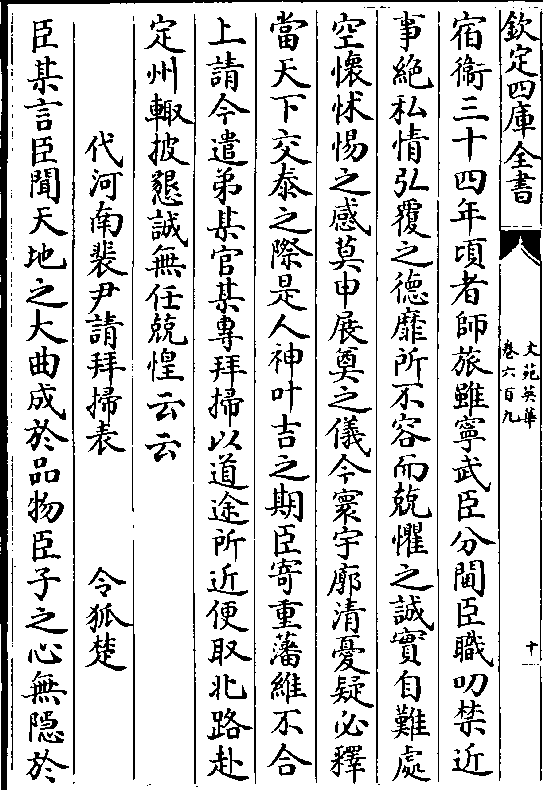 欽定四庫全書
文苑英華
卷六百九
十
宿衞三十四年頃者師旅雖寧武臣分閫臣職叨禁近
事絶私情弘覆之德靡所不容而兢懼之誠實自難處
空懷怵惕之感莫申展奠之儀今寰宇廓清憂疑必釋
當天下交泰之際是人神叶吉之期臣寄重藩維不合
上請今遣弟某官某專拜掃以道途所近便取北路赴
定州輙披懇誠無任兢惶云云
代河南裴尹請拜掃表 令狐楚
臣某言臣聞天地之大曲成於品物臣子之心無隱於